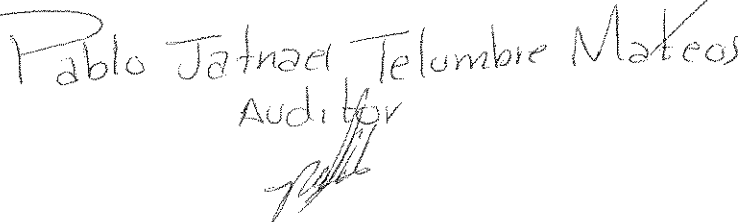 Pablo Jatnael Telumbre Mateos
Auditor